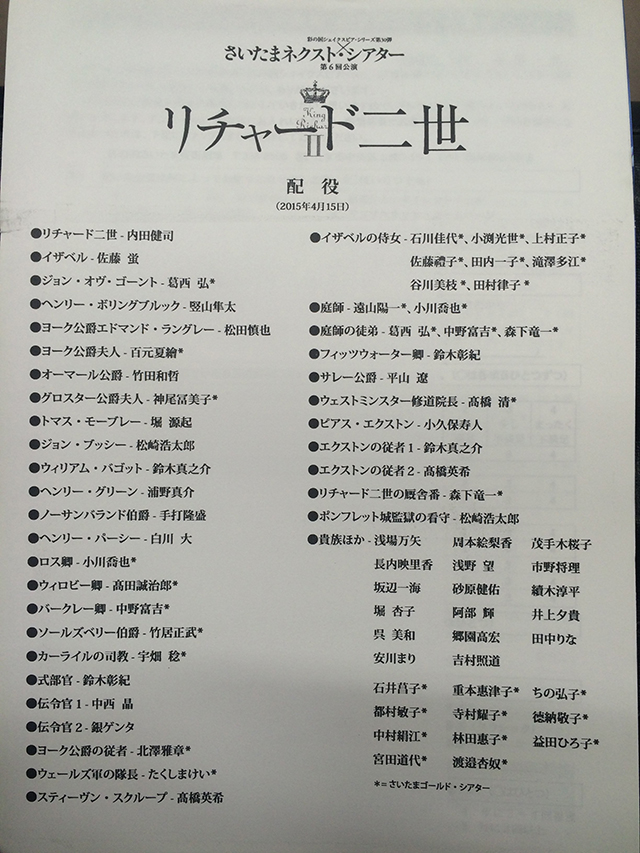 彩の国シェイクスピア・シリーズ第30弾
×
さいたまネクスト・シアター
第6回公演
King
Richard
II
リチャード二世
配 役
(2015年4月15日)
●リチャード二世 - 内田健司
●イザベル - 佐藤 蛍
●ジョン・オヴ・ゴーント - 葛西 弘*
●ヘンリー・ボリングブルック - 竪山隼太
●ヨーク公爵エドマンド・ラングレー - 松田慎也
●ヨーク公爵夫人 - 百元夏繪*
●オーマール公爵 - 竹田和哲
●グロスター公爵夫人 - 神尾冨美子*
●トマス・モーブレー - 堀 源起
●ジョン・ブッシー - 松﨑浩太郎
●ウィリアム・バゴット - 鈴木真之介
●ヘンリー・グリーン - 浦野真介
●ノーサンバランド伯爵 - 手打隆盛
●ヘンリー・パーシー - 白川 大
●ロス卿 - 小川喬也*
●ウィロビー卿 - 髙田誠治郎*
●バークレー卿 - 中野富吉*
●ソールズベリー伯爵 - 竹居正武*
●カーライルの司教 - 宇畑 稔*
●式部官 - 鈴木彰紀
●伝令官1 - 中西 晶
●伝令官2 - 銀ゲンタ
●ヨーク公爵の従者 - 北澤雅章*
●ウェールズ軍の隊長 - たくしまけい*
●スティーヴン・スクループ - 髙橋英希
●イザベルの侍女 - 石川佳代*、小渕光世*、上村正子*
佐藤禮子*、田内一子*、滝澤多江*
谷川美枝*、田村律子*
●庭師 - 遠山陽一*、小川喬也*
●庭師の徒弟 - 葛西 弘*、中野富吉*、森下竜一*
●フィッツウォーター卿 - 鈴木彰紀
●サレー公爵 - 平山 遼
●ウェストミンスター修道院長 - 髙橋 清*
●ピアス・エクストン - 小久保寿人
●エクストンの従者1 - 鈴木真之介
●エクストンの従者2 - 髙橋英希
●リチャード二世の厩舎番 - 森下竜一*
●ポンフレット城監獄の看守 - 松﨑浩太郎
●貴族ほか - 浅場万矢 周本絵梨香 茂手木桜子
長内映里香 浅野 望 市野将理
坂辺一海 砂原健佑 續木淳平
堀 杏子 阿部 輝 井上夕貴
呉 美和 郷園高宏 田中りな
安川まり 吉村照道
石井菖子* 重本惠津子* ちの弘子*
都村敏子* 寺村耀子* 德納敬子*
中村絹江* 林田惠子* 益田ひろ子*
宮田道代* 渡邉杏奴*
*=さいたまゴールド・シアター